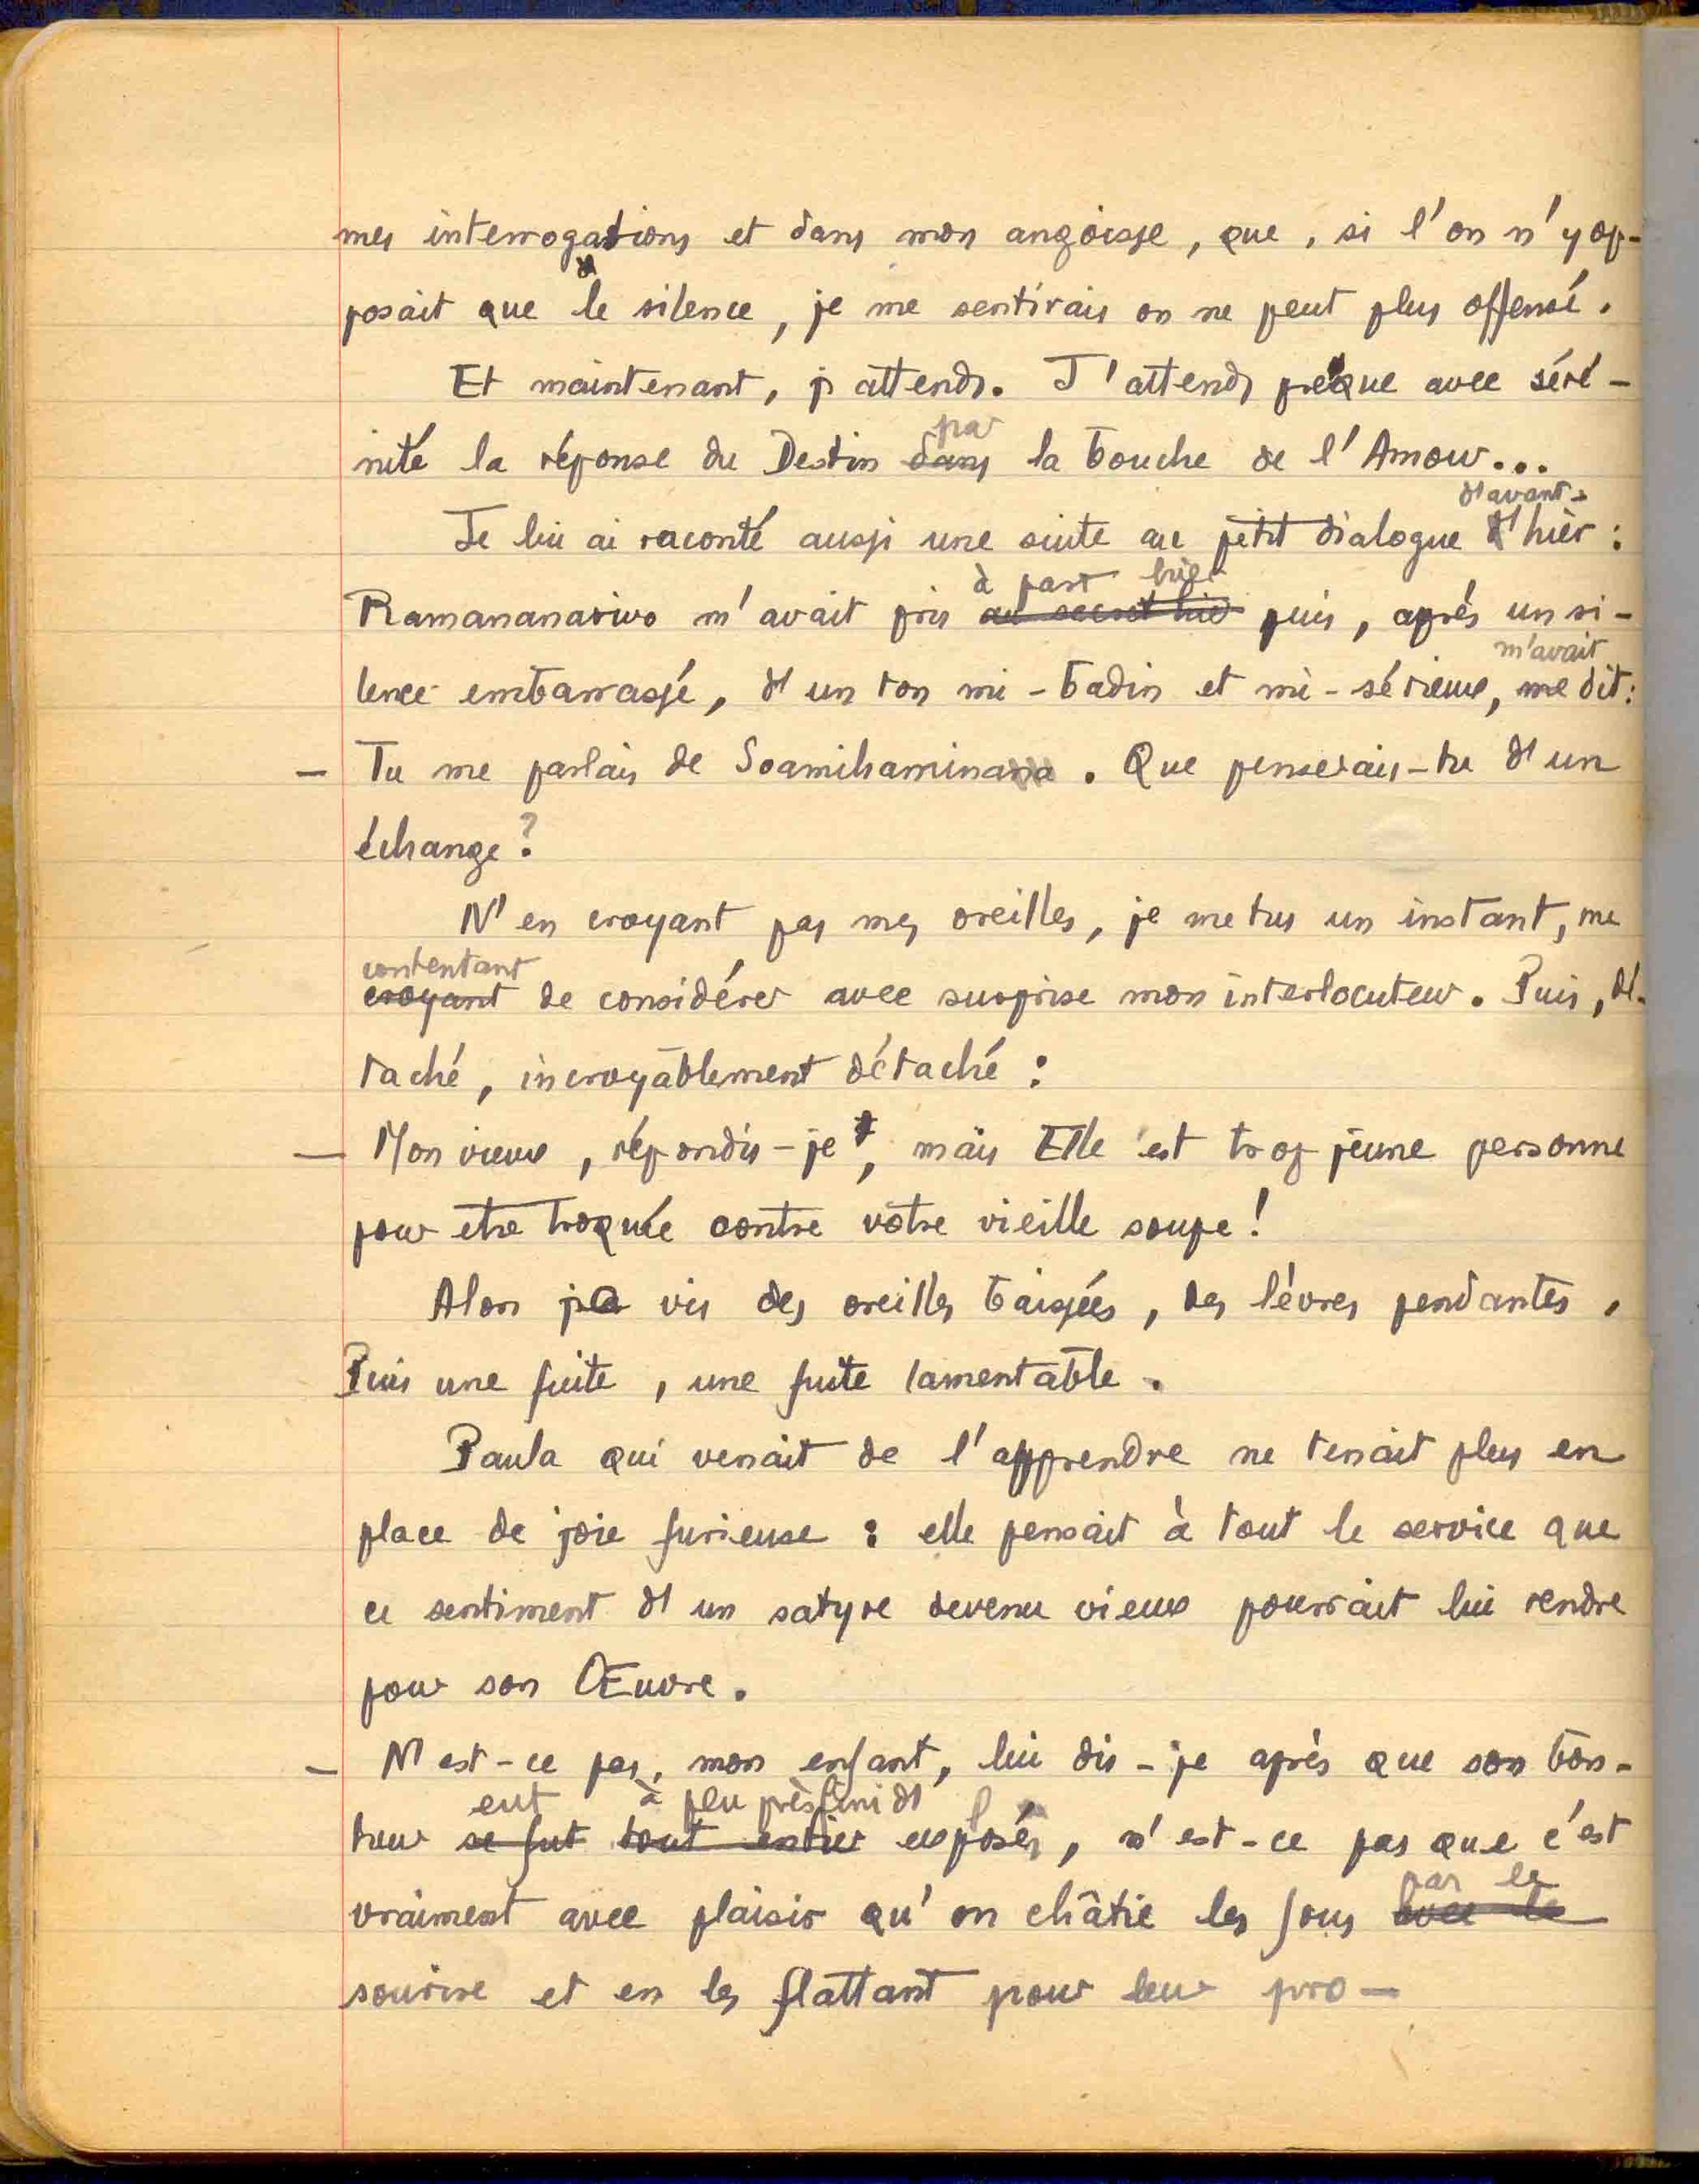 mes interrogations et dans mon angoisse, que, si l'on n'y op-
posait que le silence, je me sentirais on ne peut plus offensé.
Et maintenant, j'attends. J'attends presque avec séré-
par
nité la réponse du Destin dans la bouche de l'Amour...
d'avant-
Je lui ai raconté aussi une suite au petit dialogue d'hier :
à part hier
Ramananarivo m'avait pris au secret hier puis, après un si-
m'avait
lence embarrassé, d'un ton mi-badin et mi-sérieux, me dit :
— Tu me parlais de Soamihaminana. Que penserais-tu d'un
échange ?
N'en croyant pas mes oreilles, je me tus un instant, me
contentant
croyant de considérer avec surprise mon interlocuteur. Puis, dé-
taché, incroyablement détaché :
— Mon vieux, répondis-je, mais Elle est trop jeune personne
pour etre troquée contre votre vieille soupe !
Alors je vis des oreilles baissées, des lèvres pendantes,
Puis une fuite, une fuite lamentable.
Paula qui venait de l'apprendre ne tenait plus en
place de joie furieuse : elle pensait à tout le service que
ce sentiment d'un satyre devenu vieux pourrait lui rendre
pour son Œuvre.
— N'est-ce pas, mon enfant, lui dis-je après que son bon-
eut à peu près fini d'
heur se fut tout entier exposé, n'est-ce pas que c'est
par le
vraiment avec plaisir qu'on châtie les fous avec le
sourire et en les flattant pour leur pro-